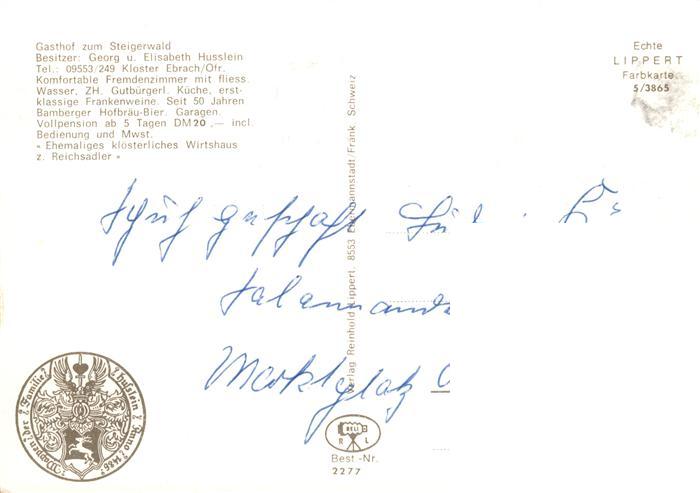 Gasthof zum Steigerwald
Besitzer: Georg u. Elisabeth Husslein
Tel.: 09553/249 Kloster Ebrach/Ofr.
Komfortable Fremdenzimmer mit fliess.
Wasser, ZH. Gutbürgerl. Küche, erst-
klassige Frankenweine. Seit 50 Jahren
Bamberger Hofbräu-Bier. Garagen.
Vollpension ab 5 Tagen DM 20,— incl.
Bedienung und Mwst.
« Ehemaliges klösterliches Wirtshaus
z. Reichsadler »
Echte
LIPPERT
Farbkarte
5/3865
Verlag Reinhold Lippert, 8553 Ebermannstadt/Fränk. Schweiz
Schuhgeschäft
Salamander
Marktplatz
Wappen der Familie Huslein Anno 1486
BELI
R L
Best.-Nr.
2277